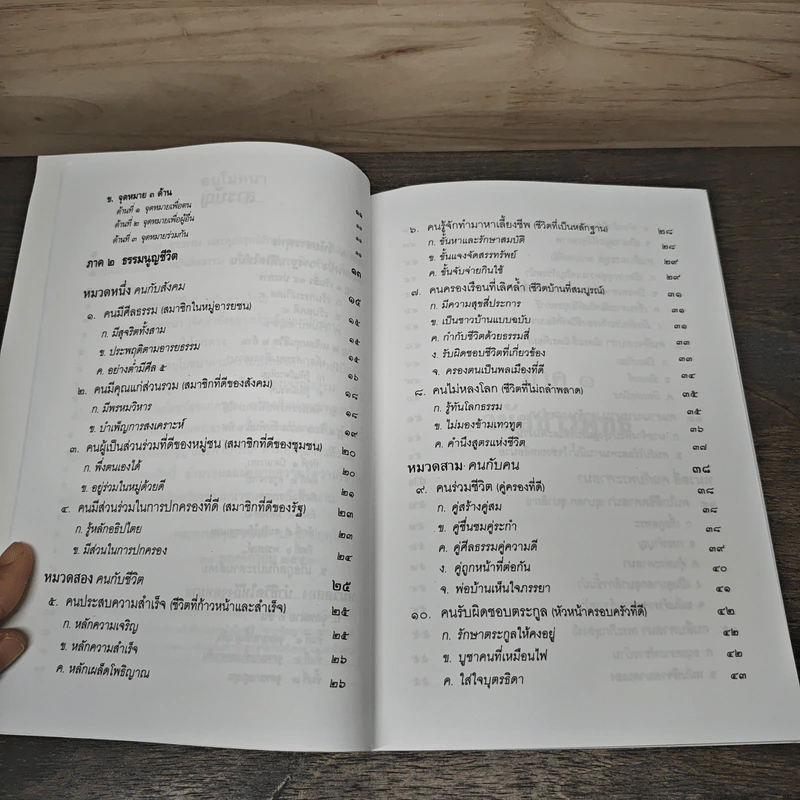 ข. จุดหมาย ๓ ด้าน ๑๑
ด้านที่ ๑ จุดหมายเพื่อตน ๑๑
ด้านที่ ๒ จุดหมายเพื่อผู้อื่น ๑๑
ด้านที่ ๓ จุดหมายร่วมกัน ๑๑
ภาค ๒ ธรรมนูญชีวิต ๑๓
หมวดหนึ่ง คนกับสังคม ๑๕
๑. คนมีศีลธรรม (สมาชิกในหมู่อารยชน) ๑๕
ก. มีสุจริตทั้งสาม ๑๕
ข. ประพฤติตามอารยธรรม ๑๕
ค. อย่างต่ำมีศีล ๕ ๑๖
๒. คนมีคุณแก่ส่วนรวม (สมาชิกที่ดีของสังคม) ๑๘
ก. มีพรหมวิหาร ๑๘
ข. บำเพ็ญการสงเคราะห์ ๑๙
๓. คนผู้เป็นส่วนร่วมที่ดีของหมู่ชน (สมาชิกที่ดีของชุมชน) ๒๐
ก. พึ่งตนเองได้ ๒๐
ข. อยู่ร่วมในหมู่ด้วยดี ๒๑
๔. คนมีส่วนร่วมในการปกครองที่ดี (สมาชิกที่ดีของรัฐ) ๒๓
ก. รู้หลักอธิปไตย ๒๓
ข. มีส่วนในการปกครอง ๒๔
หมวดสอง คนกับชีวิต ๒๕
๕. คนประสบความสำเร็จ (ชีวิตที่ก้าวหน้าและสำเร็จ) ๒๕
ก. หลักความเจริญ ๒๕
ข. หลักความสำเร็จ ๒๖
ค. หลักเผล็ดโพธิญาณ ๒๖
๖. คนรู้จักทำมาหาเลี้ยงชีพ (ชีวิตที่เป็นหลักฐาน) ๒๘
ก. ขั้นหาและรักษาสมบัติ ๒๘
ข. ขั้นแจงจัดสรรทรัพย์ ๒๙
ค. ขั้นจับจ่ายกินใช้ ๒๙
๗. คนครองเรือนที่เลิศล้ำ (ชีวิตบ้านที่สมบูรณ์) ๓๑
ก. มีความสุขสี่ประการ ๓๑
ข. เป็นชาวบ้านแบบฉบับ ๓๑
ค. กำกับชีวิตด้วยธรรมสี่ ๓๑
ง. รับผิดชอบชีวิตที่เกี่ยวข้อง ๓๓
จ. ครองตนเป็นพลเมืองที่ดี ๓๔
๘. คนไม่หลงโลก (ชีวิตที่ไม่ถลำพลาด) ๓๕
ก. รู้ทันโลกธรรม ๓๕
ข. ไม่มองข้ามเทวทูต ๓๖
ค. คำนึงสูตรแห่งชีวิต ๓๗
หมวดสาม คนกับคน ๓๘
๙. คนร่วมชีวิต (คู่ครองที่ดี) ๓๘
ก. คู่สร้างคู่สม ๓๘
ข. คู่ชื่นชมคู่ระกำ ๓๘
ค. คู่ศีลธรรมคู่ความดี ๓๙
ง. คู่ถูกหน้าที่ต่อกัน ๔๐
จ. พ่อบ้านเห็นใจภรรยา ๔๑
๑๐. คนรับผิดชอบตระกูล (หัวหน้าครอบครัวที่ดี) ๔๒
ก. รักษาตระกูลให้คงอยู่ ๔๒
ข. บูชาคนที่เหมือนไฟ ๔๒
ค. ใส่ใจบุตรธิดา ๔๓